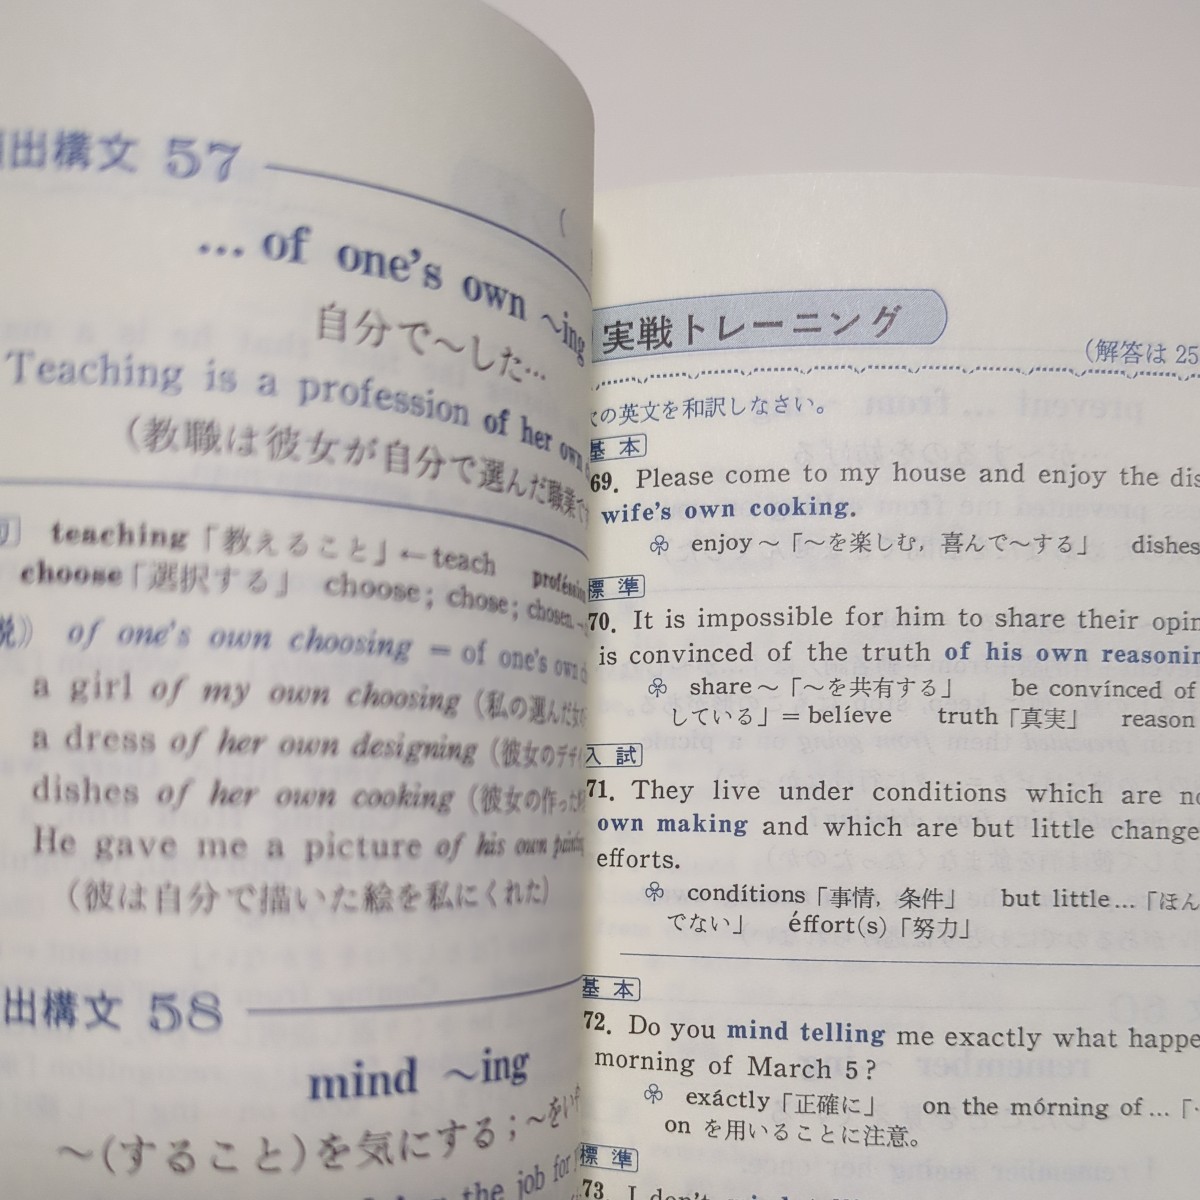 出構文 57
… of one's own ~ing
自分で~した…
Teaching is a profession of her own
(教職は彼女が自分で選んだ職業で
teaching「教えること」←teach profession
choose「選択する」 choose; chose; chosen
of one's own choosing = of one's own
a girl of my own choosing (私の選んだ女
a dress of her own designing (彼女のデザイ
dishes of her own cooking (彼女の作った
He gave me a picture of his own painting
(彼は自分で描いた絵を私にくれた)
出構文 58
mind ~ing
~(すること)を気にする;~をい
the job for
実戦トレーニング
(解答は 25
の英文を和訳しなさい。
基本
69. Please come to my house and enjoy the
wife's own cooking.
enjoy~「~を楽しむ,喜んで~する」 dishes
標準
70. It is impossible for him to share their
is convinced of the truth of his own
share~「~を共有する」 be convínced of
している」=belíeve truth「真実」 reason
入試
71. They live under conditions which are
own making and which are but little change
efforts.
condítions「事情,条件」 but little…「ほん
でない」 éffort(s)「努力」
基本
72. Do you mind telling me exactly what
morning of March 5?
exáctly「正確に」 on the mórning of…「
on を用いることに注意。
標準
73. I don't